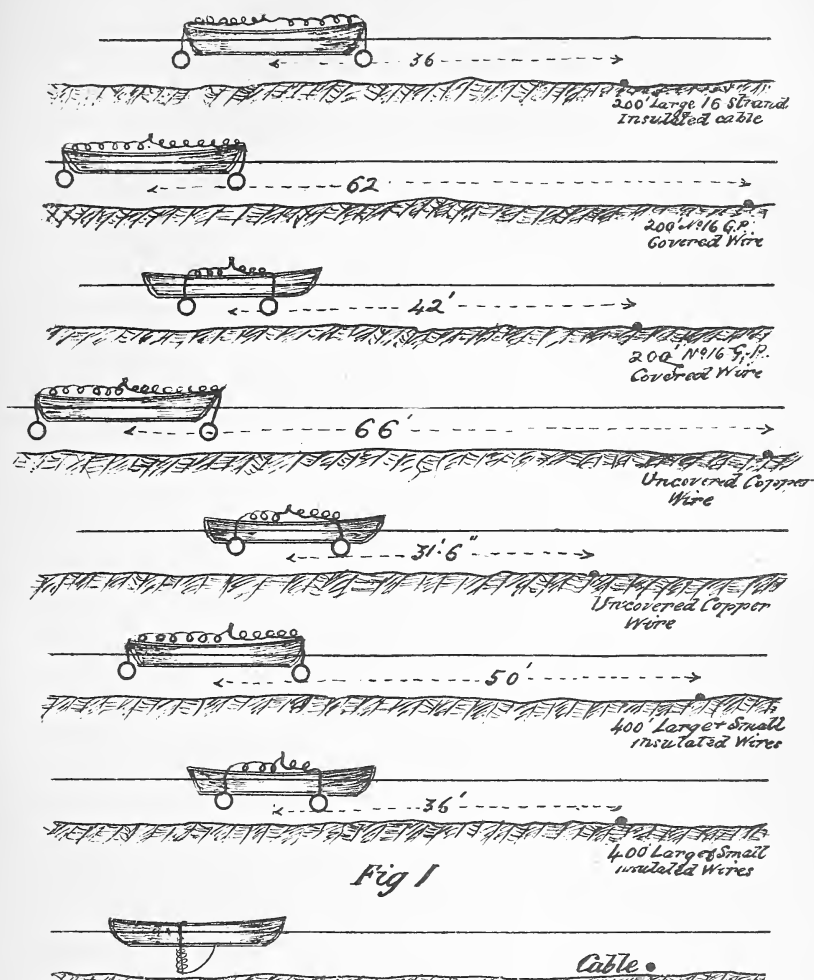 36
200' Large 16 Strand
Insulated cable
62
200' No16 G.P.
Covered Wire
42'
200' No16 G.P.
Covered Wire
66'
Uncovered Copper
Wire
31'.6"
Uncovered Copper
Wire
50'
400' Large & Small
insulated Wires
36'
400' Large & Small
insulated Wires
Fig 1
Cable